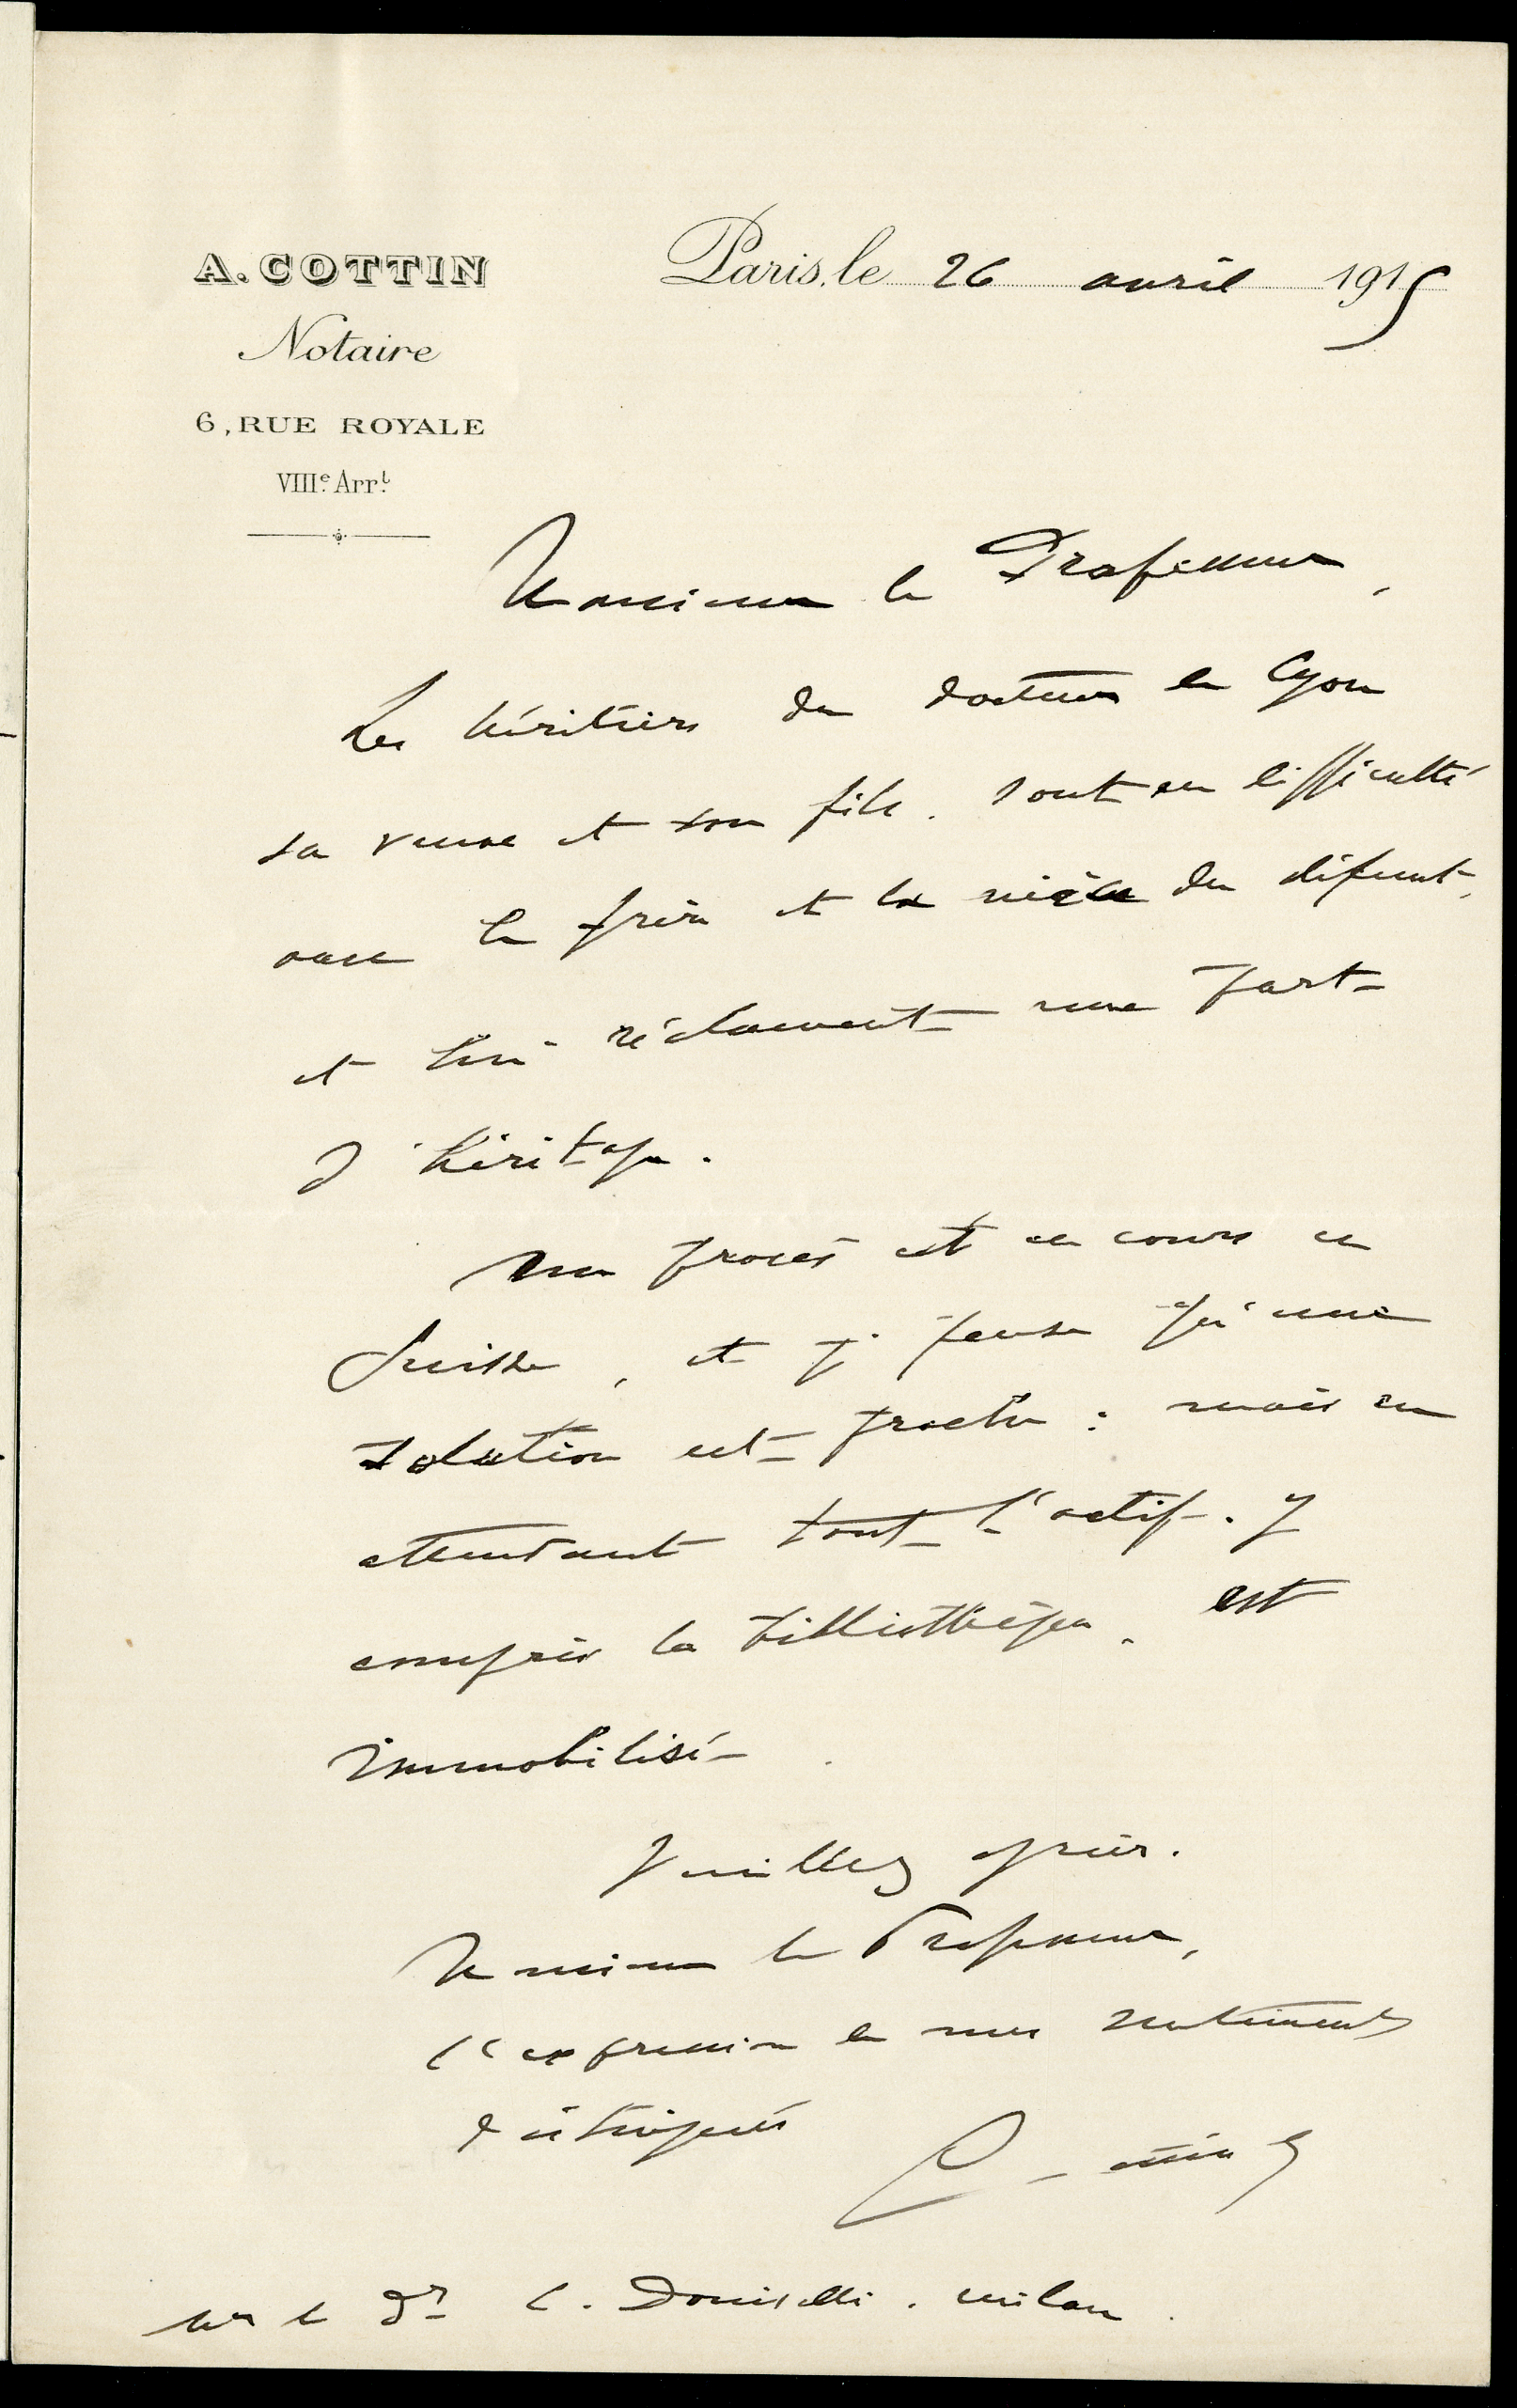 A. COTTIN
Notaire
6, RUE ROYALE
VIIIe. Arrt.
Paris, le 26 avril 1915
Monsieur le Professeur,
Les héritiers du docteur de Cyon
sa veuve et son fils. sont en difficulté
avec le frère et la nièce du défunt,
et qui réclament une part
d'héritage.
Un procès est en cours en
Suisse, et je pense qu'une
solution est proche : mais en
attendant tout l'actif. y
compris la bibliothèque. est
immobilisé
Veuillez agréer.
Monsieur le Professeur,
l'expression de mes sentiments
distingués
Mr le Dr C. Doniselli. Milan.